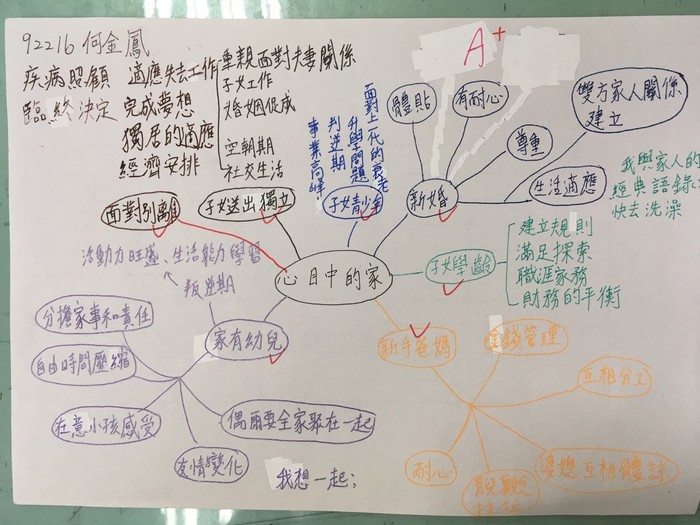 92216 何金鳳
A+
疾病照顧
臨終決定
適應失去工作
完成夢想
獨居的適應
經濟安排
重視面對夫妻關係
子女工作
婚姻促成
空朝期
社交生活
面對上一代的衰老
升學問題
判逆期
事業高峰
體貼
有耐心
尊重
雙方家人關係
建立
生活適應
新婚
我與家人的
經典語錄:
快去洗澡
面對別離
子女送出獨立
子女青少年
心目中的家
子女學齡
建立規則
滿足探索
職涯家務
財務的平衡
活動力旺盛、生活能力學習
叛逆期
家有幼兒
分擔家事和責任
自由時間壓縮
在意小孩感受
友情變化
偶爾要全家聚在一起
我想一起:
新手爸媽
金錢管理
互相分工
婆媳互相體諒
耐心